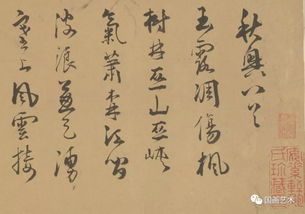 秋興八首
玉露凋傷楓
樹林巫山巫峽
氣蕭森江間
波浪兼天湧
塞上風雲接
国画艺术